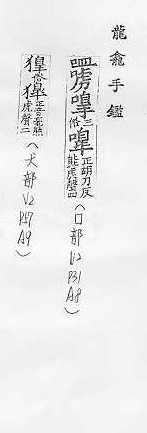 龍龕手鑑
嘷俗三嗥正胡刀反熊虎聲四
（口部 V2 P31 A8）
俗獋正音豪熊虎聲二
（犬部 V2 P17 A9）